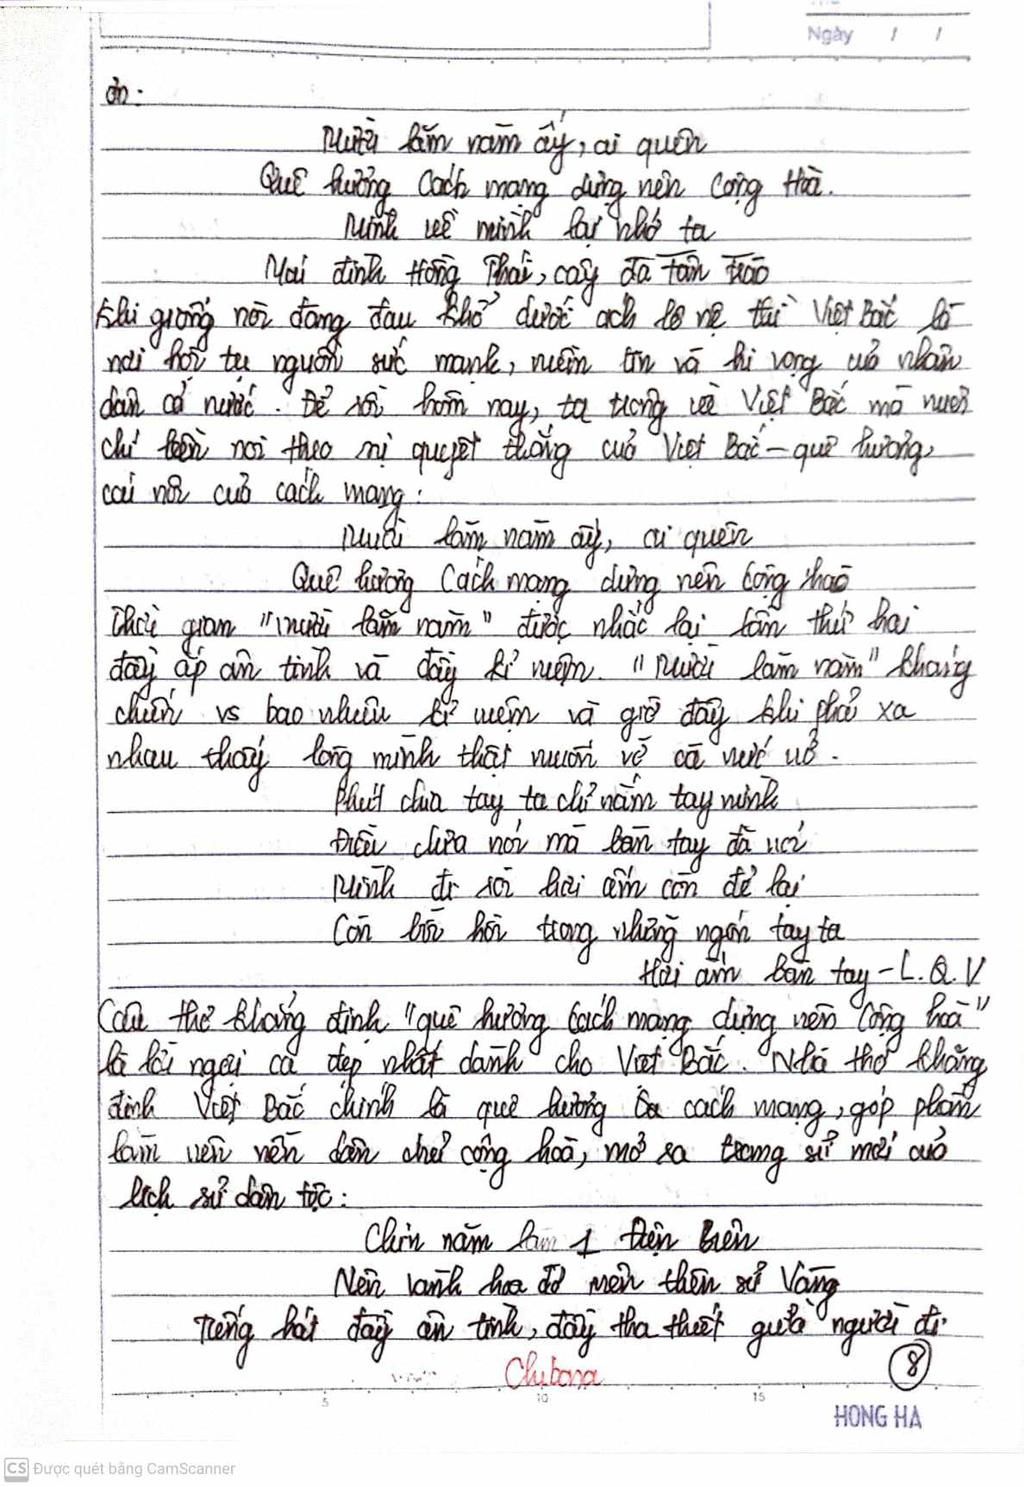 Ngày / /
ơn:
Mười lăm năm ấy, ai quên
Quê hương Cách mạng dựng nên Cộng Hòa.
Mình về mình lại nhớ ta
Mái đình Hồng Thái, cây đa Tân Trào
Khi giống nòi đang đau khổ dưới ách nô lệ thì Việt Bắc là
nơi hội tụ nguồn sức mạnh, niềm tin và hi vọng của nhân
dân cả nước. Để rồi hôm nay, ta trông về Việt Bắc mà nuôi
chí bền noi theo sự quyết thắng của Việt Bắc – quê hương,
cái nôi của cách mạng:
Mười lăm năm ấy, ai quên
Quê hương Cách mạng dựng nên Cộng hoà
Thời gian "mười lăm năm" được nhắc lại lần thứ hai
đầy ắp ân tình và đầy kỉ niệm. "Mười lăm năm" kháng
chiến vs bao nhiêu kỉ niệm và giờ đây khi phải xa
nhau thấy lòng mình thật muốn vỡ oà nức nở.
Phút chia tay ta chỉ nắm tay mình
Điều chưa nói mà bàn tay đã nói
Mình đi rồi hơi ấm còn để lại
Còn bồi hồi trong những ngón tay ta
Hơi ấm bàn tay – L.Q.V
Câu thơ khẳng định "quê hương Cách mạng dựng nên Cộng hoà"
là lời ngợi ca đẹp nhất dành cho Việt Bắc. Nhà thơ khẳng
định Việt Bắc chính là quê hương cách mạng, góp phần
làm nên nền dân chủ cộng hoà, mở ra trang sử mới của
lịch sử dân tộc:
Chín năm làm 1 Điện Biên
Nên vành hoa đỏ nên thiên sử Vàng
Tiếng hát đầy ân tình, đầy tha thiết giữa người đi
Chibooa
8
5 10 15
HONG HA
CS Được quét bằng CamScanner